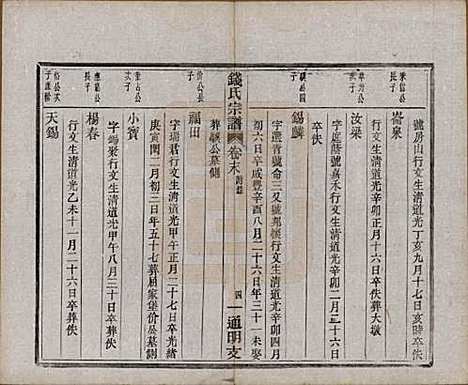 秉信公
長子
崙泉
號房山行文生清道光丁亥九月十七日亥時
卒佚
卓方公
長子
汝梁
行文生清道光辛卯正月十六日卒佚葬大墩
錫麟
字慶蔭號嘉禾行文生清道光辛卯二月十三日
卒佚
字書青號命三又號郑標行文生清道光辛卯四月
初六日卒咸豐辛酉八月二十六日年三十一未娶
葬嶽公墓側
錢氏宗譜
卷末
四
通明支
价公長
子
福田
字瑞君行文生清道光甲午正月二十七日卒光緒
庚寅閏二月初三日年五十七葬屈家堡价公墓側
次子
小寶
字錫榮行文生清道光甲午八月三十日卒葬佚
長子
楊春
裕公次
天錫
行文生清道光乙未十一月二十六日卒葬佚